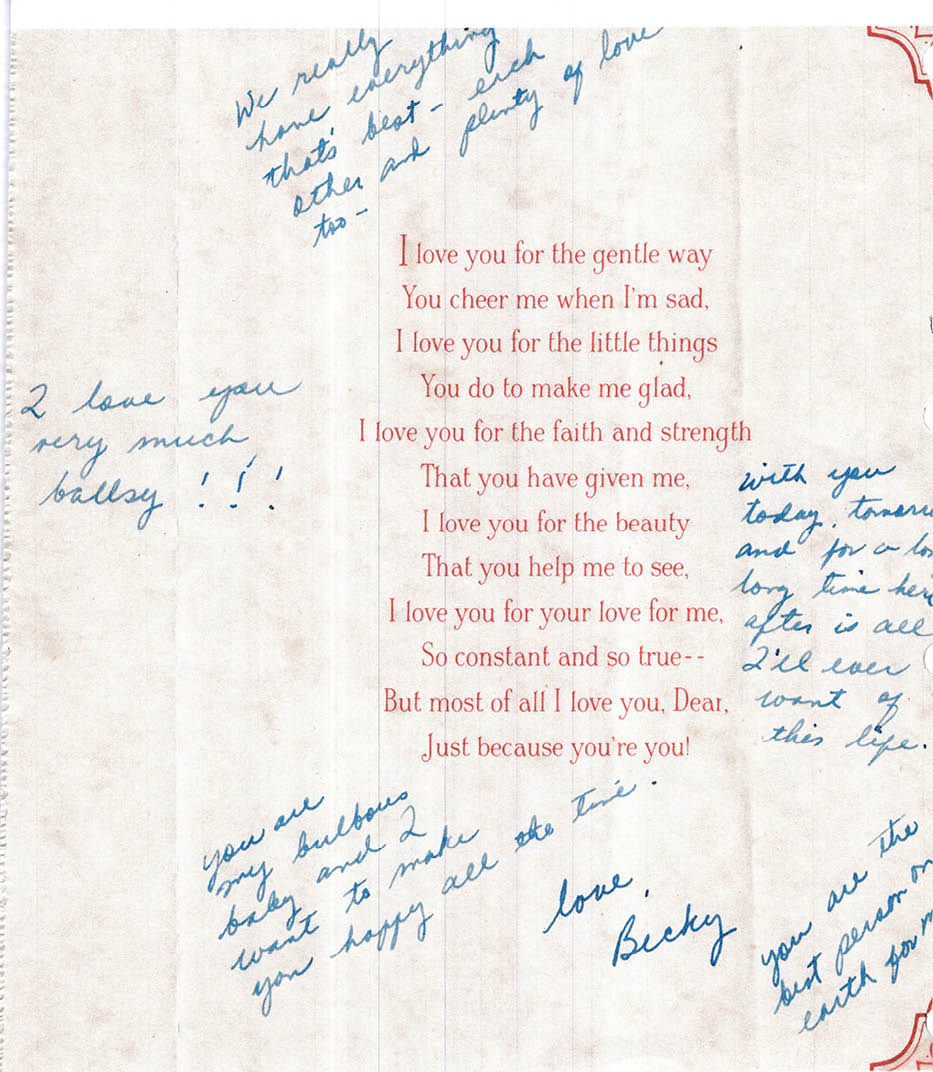 We really
have everything
that's best - each
other and plenty of love
too -
I love you for the gentle way
You cheer me when I'm sad,
I love you for the little things
You do to make me glad,
I love you for the faith and strength
That you have given me,
I love you for the beauty
That you help me to see,
I love you for your love for me,
So constant and so true--
But most of all I love you, Dear,
Just because you're you!
I love you
very much
ballsy !!!
with you
today, tomorr
and for a lo
long time here
after is all
I'll ever
want of
this life.
you are
my bulbous
baby and I
want to make
you happy all the time.
love,
Becky
you are the
best person on
earth for m